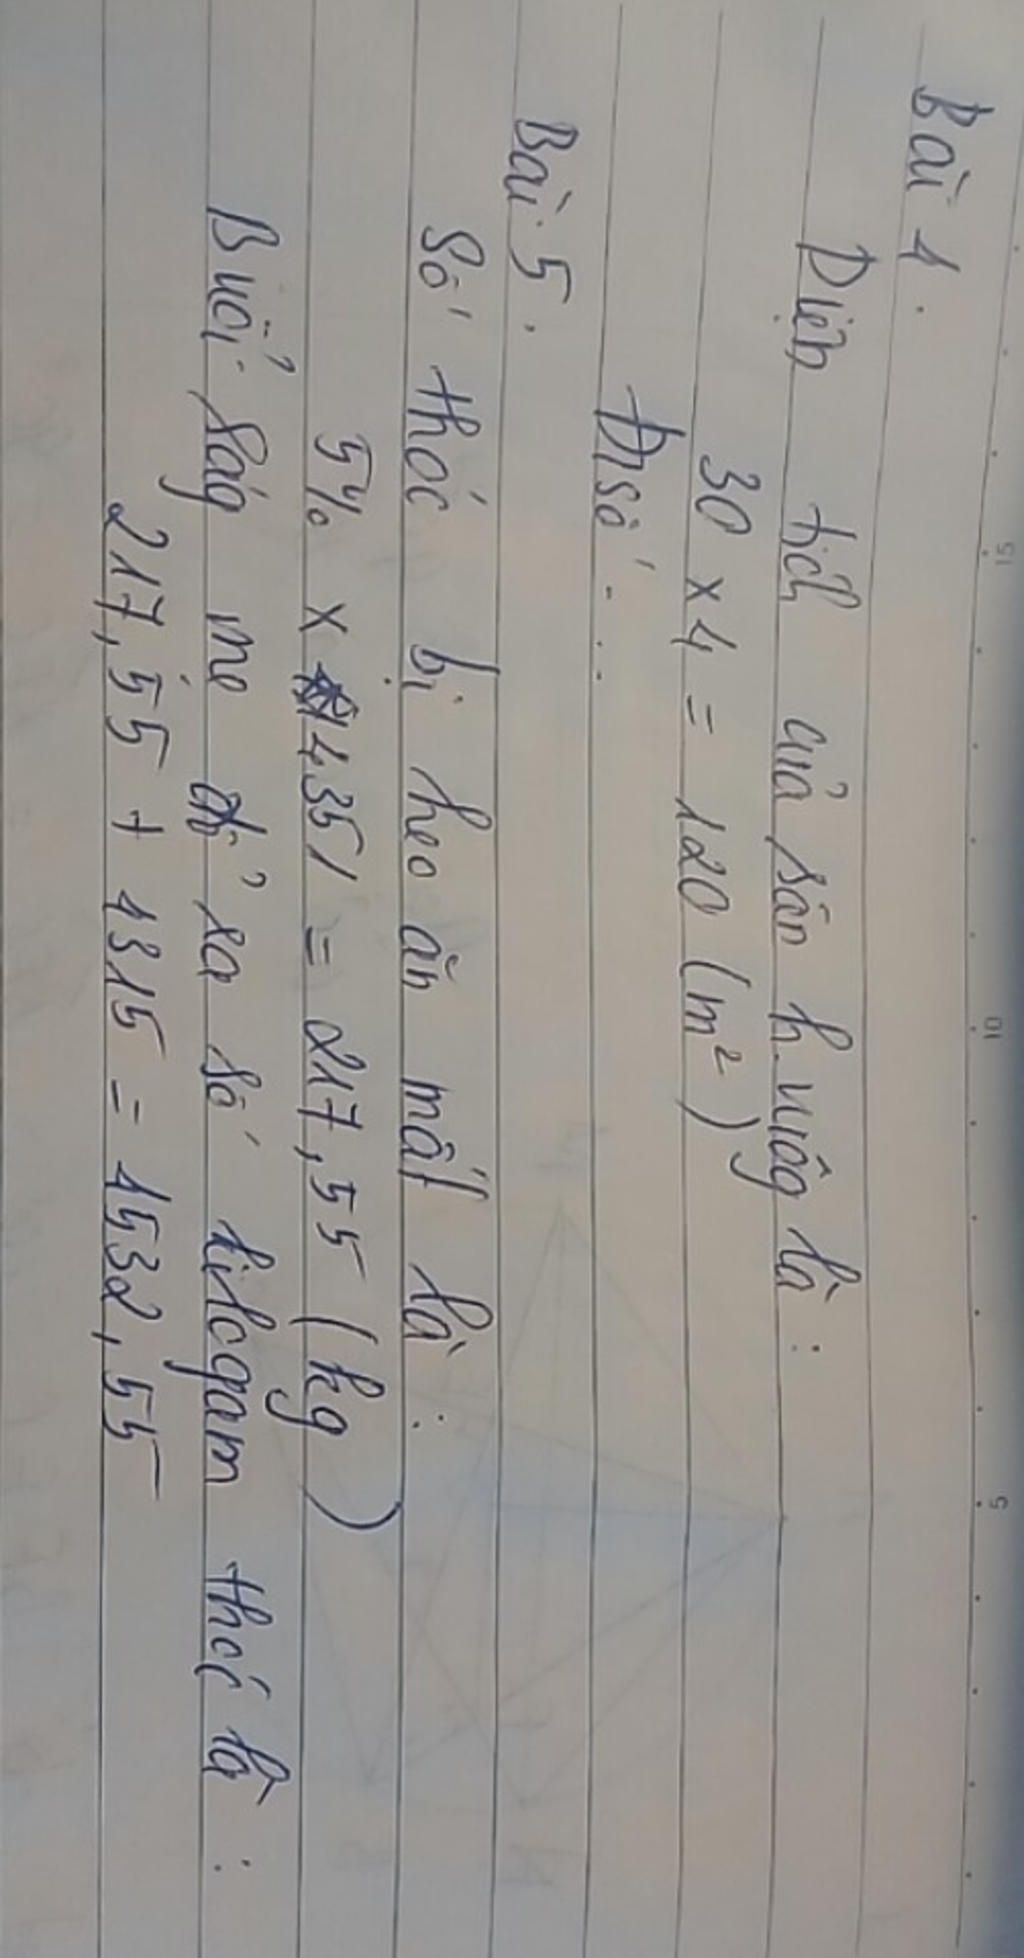 Bài 1.
Diện tích của sân h.vuôg là :
30 x 4 = 120 (m²)
Đ/số - . .
Bài 5.
Số thóc bị heo ăn mất là :
5% x 4351 = 217,55 (kg)
Buổi ság mẹ đổ ra số kilogam thóc là :
217,55 + 1315 = 1532,55
15
10
5